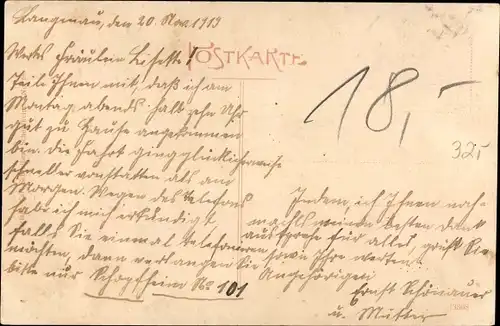 Langenau, den 20 Nov. 1919
Wertes Fräulein Lisette!
POSTKARTE
Teile Ihnen mit, daß ich am
Montag abends halb zehn Uhr
gut zu Hause angekommen
bin. Die Fahrt ging glücklicherweise
schneller vonstatten als am
Morgen. Wegen des Telefons
habe ich mich erkundigt
falls Sie einmal telefonieren
möchten, dann verlangen Sie
bitte nur Schopfheim No 101
18,-
32,-
Indem ich Ihnen noch-
mals meinen besten Dank
ausspreche für alles, grüßt Sie
sowie Ihre werten
Angehörigen
Ernst Schönauer
u. Mutter